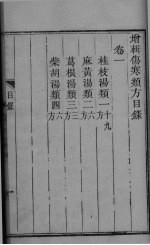 增輯傷寒類方目錄
卷一
桂枝湯類一十九方
麻黃湯類二六方
葛根湯類三三方
柴胡湯類四六方
目錄